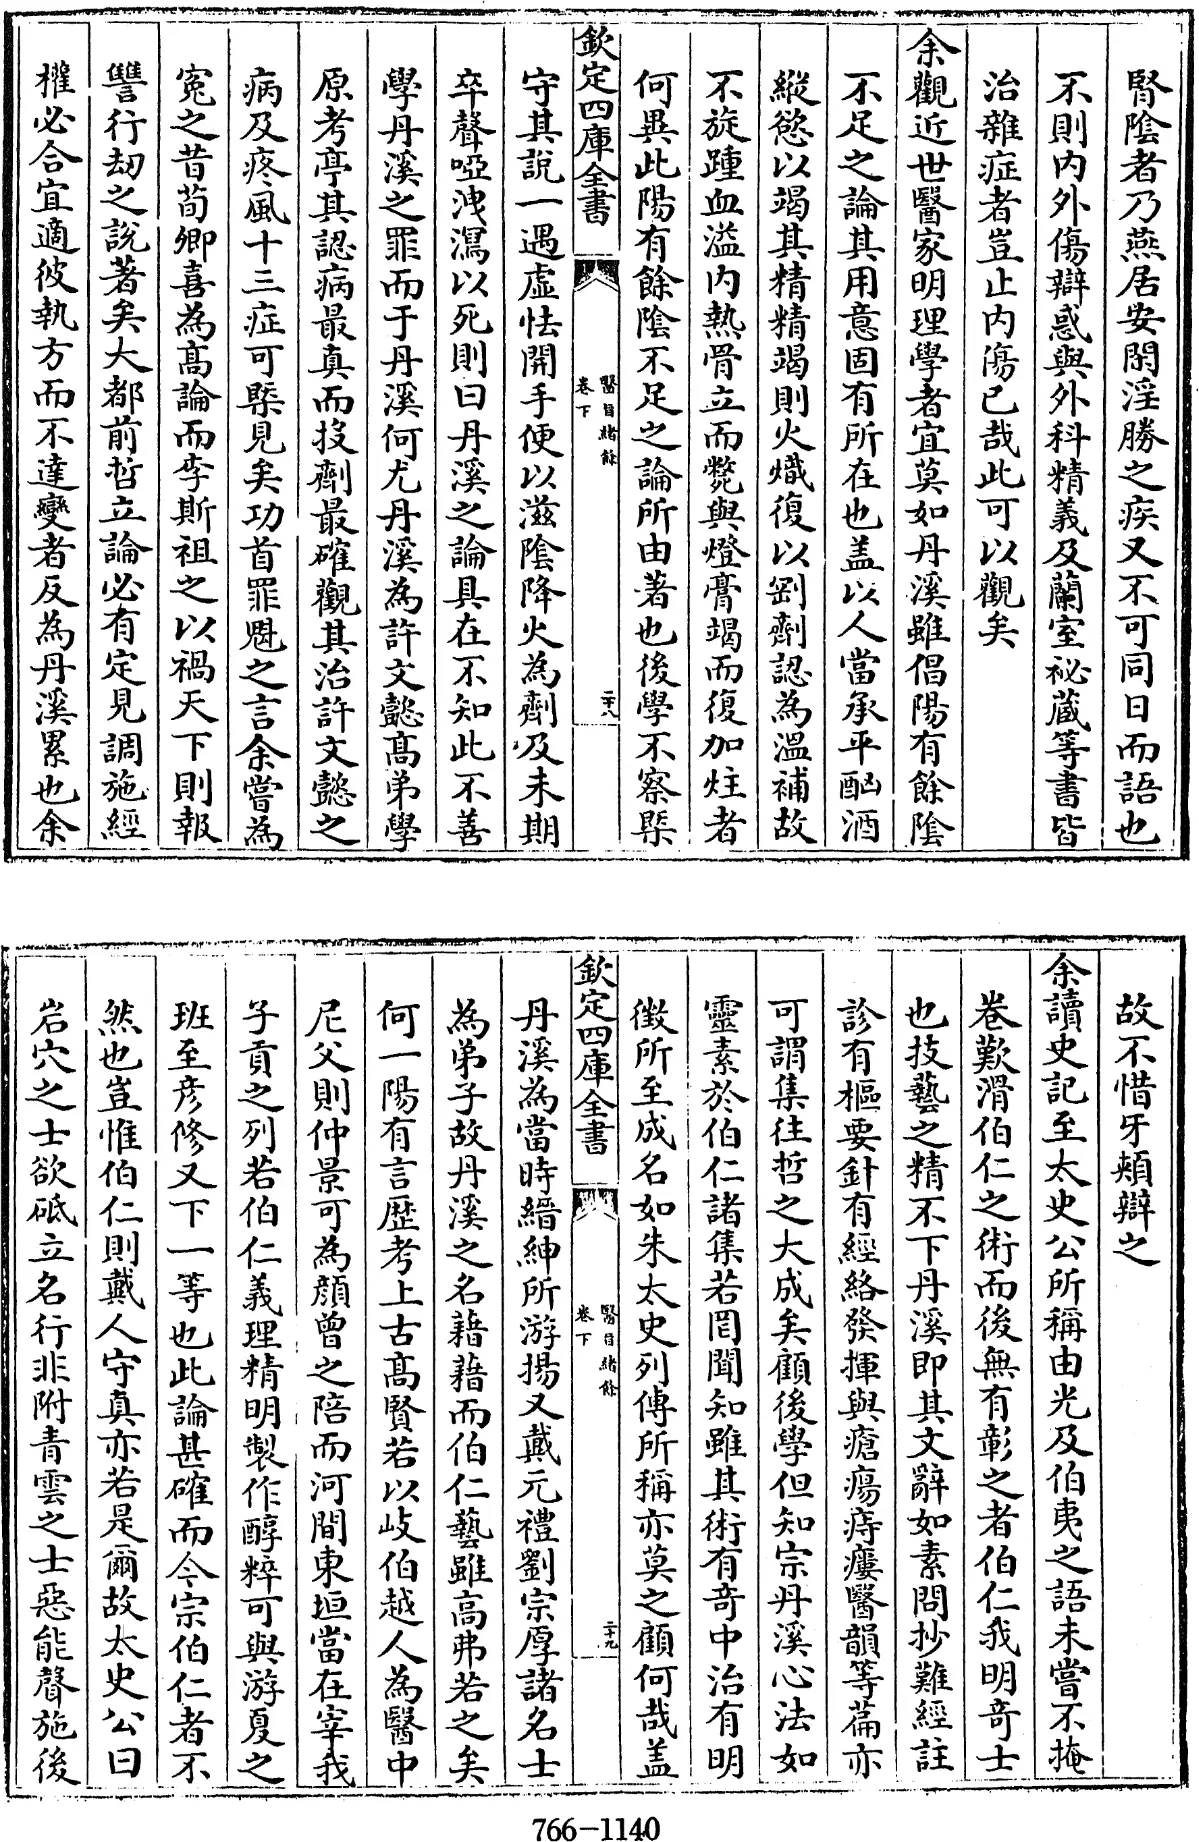 腎陰者乃燕居安閑淫勝之疾又不可同日而語也
不則内外傷辯惑與外科精義及蘭室祕蔵等書皆
治雜症者豈止内傷已哉此可以觀矣
余觀近世醫家明理學者宜莫如丹溪雖倡陽有餘陰
不足之論其用意固有所在也盖以人當承平酗酒
縱慾以竭其精精竭則火熾復以剛劑認為温補故
不旋踵血溢内熱骨立而斃與燈膏竭而復加炷者
何異此陽有餘陰不足之論所由著也後學不察槩
欽定四庫全書
醫旨緒餘
卷下
二十八
守其說一遇虛怯開手便以滋陰降火為劑及未期
卒聲啞洩瀉以死則曰丹溪之論具在不知此不善
學丹溪之罪而于丹溪何尤丹溪為許文懿髙弟學
原考亭其認病最真而投劑最確觀其治許文懿之
病及疼風十三症可槩見矣功首罪魁之言余嘗為
寃之昔荀卿喜為髙論而李斯祖之以禍天下則報
讐行刼之説著矣大都前哲立論必有定見調施經
權必合宜適彼執方而不達變者反為丹溪累也余
故不惜牙頰辯之
余讀史記至太史公所稱由光及伯夷之語未嘗不掩
卷歎滑伯仁之術而後無有彰之者伯仁我明竒士
也技藝之精不下丹溪即其文辭如素問抄難經註
診有樞要針有經絡發揮與瘡瘍痔瘻醫韻等篇亦
可謂集往哲之大成矣顧後學但知宗丹溪心法如
靈素於伯仁諸集若罔聞知雖其術有竒中治有明
徵所至成名如朱太史列傳所稱亦莫之顧何哉盖
欽定四庫全書
醫旨緒餘
卷下
二十九
丹溪為當時縉紳所游揚又戴元禮劉宗厚諸名士
為弟子故丹溪之名藉藉而伯仁藝雖高弗若之矣
何一陽有言歴考上古髙賢若以岐伯越人為醫中
尼父則仲景可為顔曾之陪而河間東垣當在宰我
子貢之列若伯仁義理精明製作醇粹可與游夏之
班至彦修又下一等也此論甚確而今宗伯仁者不
然也豈惟伯仁則戴人守真亦若是爾故太史公曰
岩穴之士欲砥立名行非附青雲之士惡能聲施後
766-1140